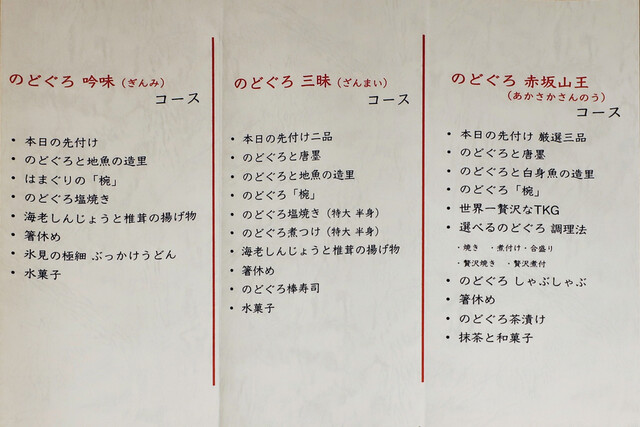 のどぐろ 吟味（ぎんみ）
コース
・ 本日の先付け
・ のどぐろと地魚の造里
・ はまぐりの「椀」
・ のどぐろ塩焼き
・ 海老しんじょうと椎茸の揚げ物
・ 箸休め
・ 氷見の極細 ぶっかけうどん
・ 水菓子
のどぐろ 三昧（ざんまい）
コース
・ 本日の先付け二品
・ のどぐろと唐墨
・ のどぐろと地魚の造里
・ のどぐろ「椀」
・ のどぐろ塩焼き（特大 半身）
・ のどぐろ煮つけ（特大 半身）
・ 海老しんじょうと椎茸の揚げ物
・ 箸休め
・ のどぐろ棒寿司
・ 水菓子
のどぐろ 赤坂山王
（あかさかさんのう）
コース
・ 本日の先付け 厳選三品
・ のどぐろと唐墨
・ のどぐろと白身魚の造里
・ のどぐろ「椀」
・ 世界一贅沢なTKG
・ 選べるのどぐろ 調理法
・焼き ・煮付け・合盛り
・贅沢焼き ・贅沢煮付
・ のどぐろ しゃぶしゃぶ
・ 箸休め
・ のどぐろ茶漬け
・ 抹茶と和菓子